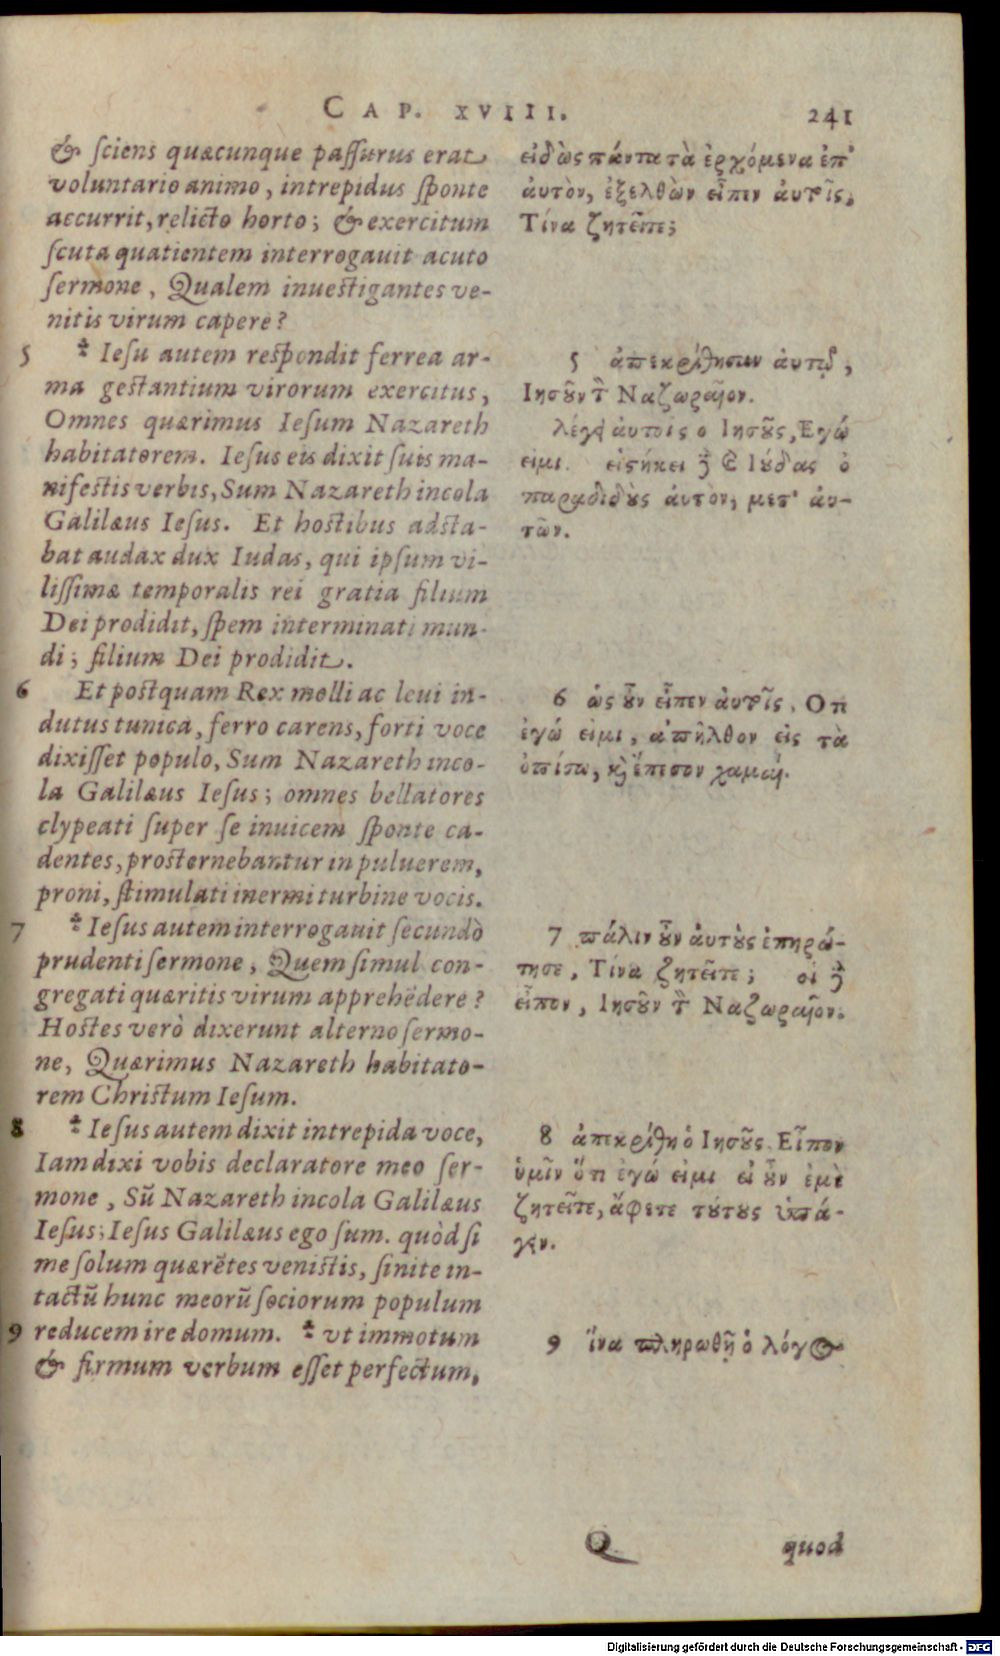 CAP. XVIII.
241
& ſciens quæcunque paſſurus erat
voluntario animo, intrepidus ſponte
accurrit, relicto horto; & exercitum
ſcuta quatientem interrogauit acuto
ſermone, Qualem inueſtigantes ve-
nitis virum capere?
5 * Ieſu autem reſpondit ferrea ar-
ma geſtantium virorum exercitus,
Omnes quærimus Ieſum Nazareth
habitatorem. Ieſus eis dixit ſuis ma-
nifeſtis verbis, Sum Nazareth incola
Galilæus Ieſus. Et hoſtibus adſta-
bat audax dux Iudas, qui ipſum vi-
liſſimæ temporalis rei gratia filium
Dei prodidit, ſpem interminati mun-
di; filium Dei prodidit.
6 Et poſtquam Rex molli ac leui in-
dutus tunica, ferro carens, forti voce
dixiſſet populo, Sum Nazareth inco-
la Galilæus Ieſus; omnes bellatores
clypeati ſuper ſe inuicem ſponte ca-
dentes, proſternebantur in puluerem,
proni, ſtimulati inermi turbine vocis.
7 * Ieſus autem interrogauit ſecundò
prudenti ſermone, Quem ſimul con-
gregati quæritis virum apprehēdere?
Hoſtes verò dixerunt alterno ſermo-
ne, Quærimus Nazareth habitato-
rem Chriſtum Ieſum.
8 * Ieſus autem dixit intrepida voce,
Iam dixi vobis declaratore meo ſer-
mone, Sū Nazareth incola Galilæus
Ieſus; Ieſus Galilæus ego ſum. quòd ſi
me ſolum quærētes veniſtis, ſinite in-
tactū hunc meorū ſociorum populum
9 reducem ire domum. * vt immotum
& firmum verbum eſſet perfectum,
εἰδὼς πάντα τὰ ἐρχόμενα ἐπ'
ἀυτὸν, ἐξελθὼν εἶπεν ἀυτοῖς,
Τίνα ζητεῖτε;
5 ἀπεκρίθησαν ἀυτῷ,
Ἰησοῦν τ̀ Ναζωραῖον.
λέγει ἀυτοις ο Ιησοῦς, Εγώ
ειμι. εἱστήκει ȣ̓ ϗ Ιούδας ὁ
παραδιδοὺς ἀυτὸν, μετ' ἀυ-
τῶν.
6 ὡς οὖν εἶπεν ἀυτοῖς, Οτι
ἐγώ εἰμι, ἀπῆλθον εἰς τὰ
ὀπίσω, ϗ ἔπεσον χαμαί.
7 πάλιν οὖν ἀυτοὺς ἐπηρώ-
τησε, Τίνα ζητεῖτε; οἱ δὲ
εἶπον, Ιησοῦν τ̀ Ναζωραῖον.
8 ἀπεκρίθη ὁ Ιησοῦς, Εἶπον
ὑμῖν ὅτι ἐγώ εἰμι εἰ οὖν ἐμὲ
ζητεῖτε, ἄφετε τούτους ὑπά-
γειν.
9 ἵνα πληρωθῇ ὁ λόγος
Q
quod
Digitalisierung gefördert durch die Deutsche Forschungsgemeinschaft - DFG